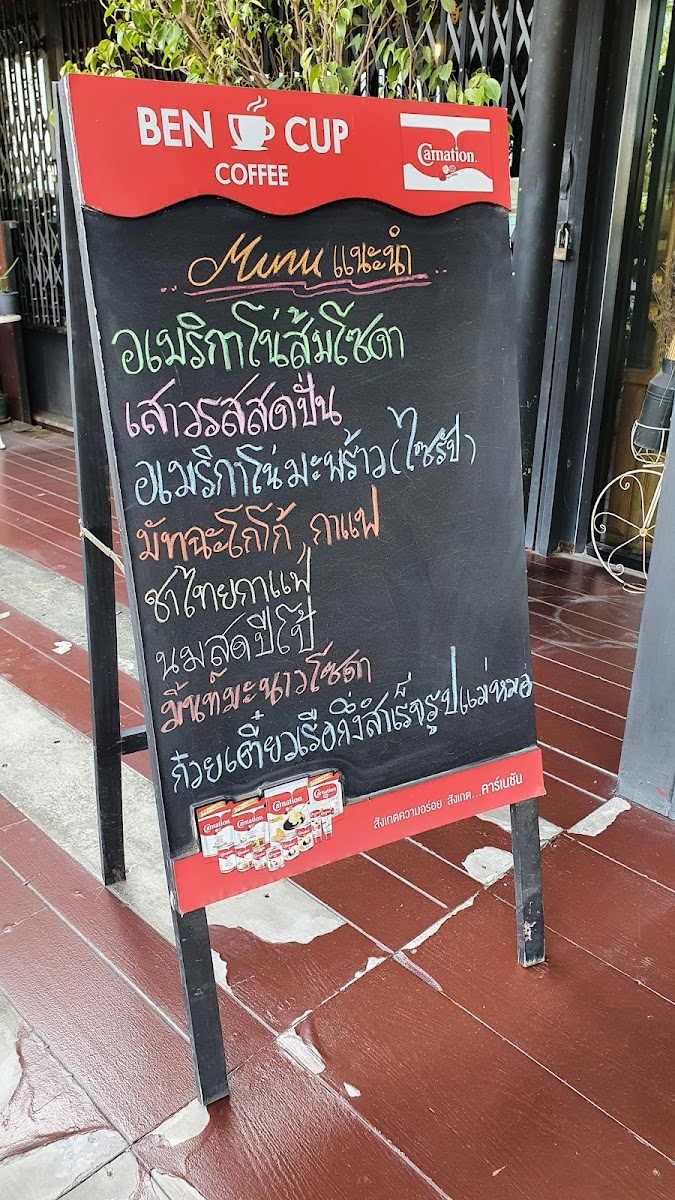 BEN CUP
COFFEE
Carnation
Menu แนะนำ
อเมริกาโน่ส้มโซดา
เสาวรสสดปั่น
อเมริกาโน่มะพร้าว(ไซรัป)
มัทฉะโกโก้,กาแฟ
ชาไทยกาแฟ
นมสดปีโป้
มิ้นท์มะนาวโซดา
ก๋วยเตี๋ยวเรือกึ่งสำเร็จรูปแม่หมอ
Carnation
Carnation
Carnation
Carnation
สังเกตความอร่อย สังเกต...คาร์เนชัน